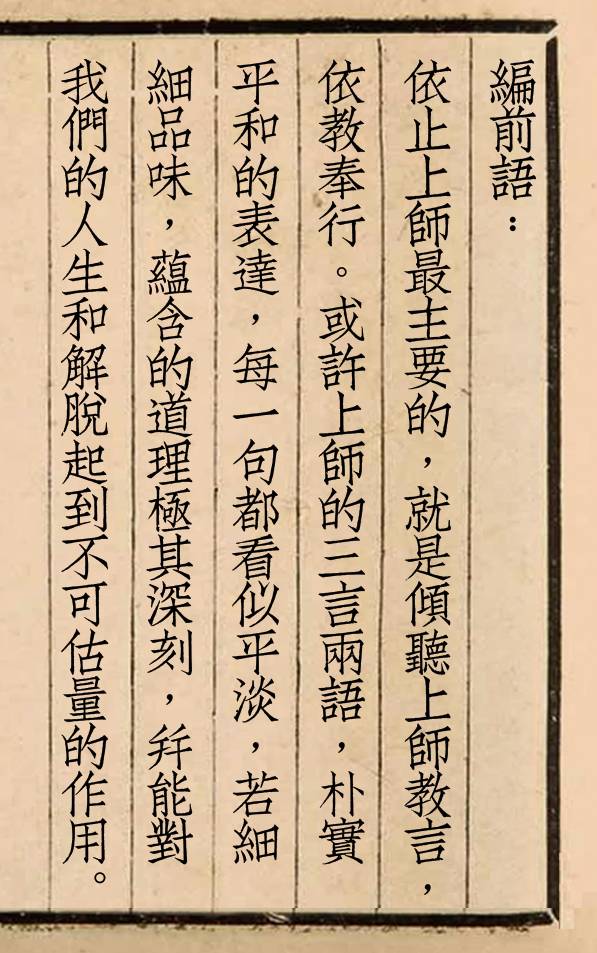 編前語：
依止上師最主要的，就是傾聽上師教言，
依教奉行。或許上師的三言兩語，朴實
平和的表達，每一句都看似平淡，若細
細品味，蘊含的道理極其深刻，幷能對
我們的人生和解脫起到不可估量的作用。